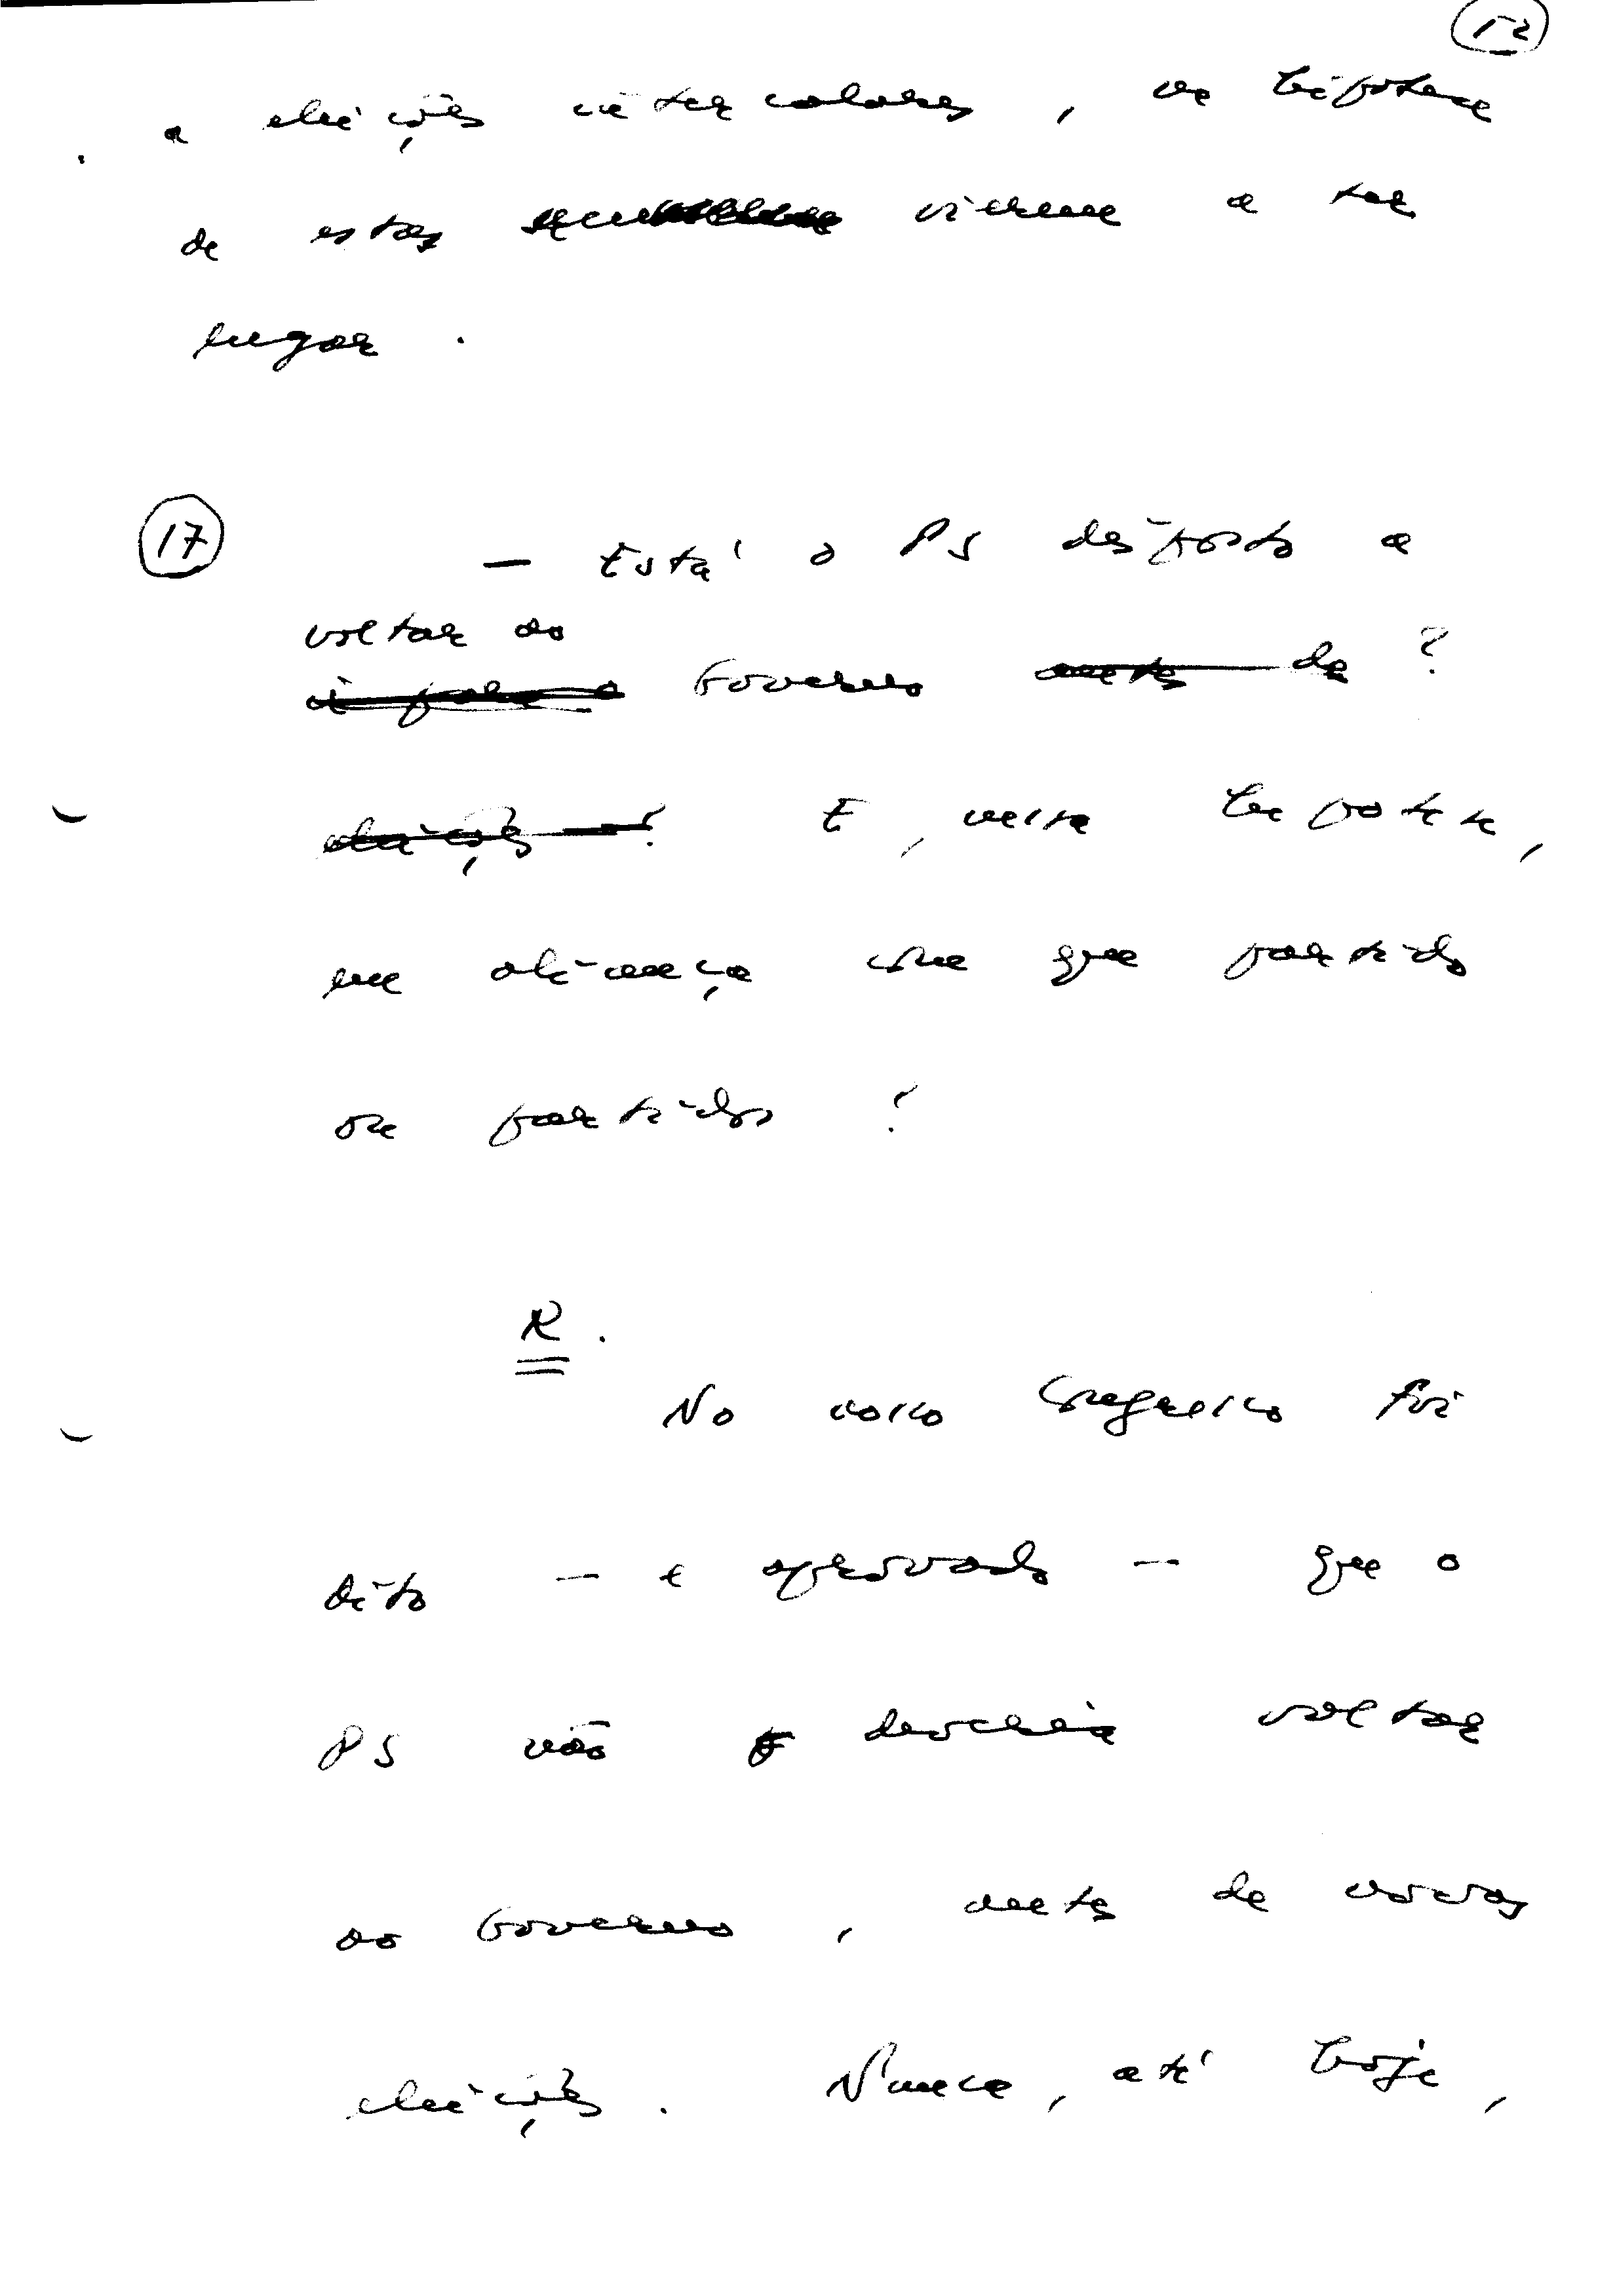 12
a eleições intercalares, na hipótese
de estas virem a ter
lugar.
17
— Está o PS disposto a
voltar ao
Governo antes de ?
eleições? E, nessa hipótese,
em aliança com que partido
ou partidos?
R.
No nosso Congresso foi
dito — e aprovado — que o
PS não deveria voltar
ao Governo, antes de novas
eleições. Nunca, até hoje,